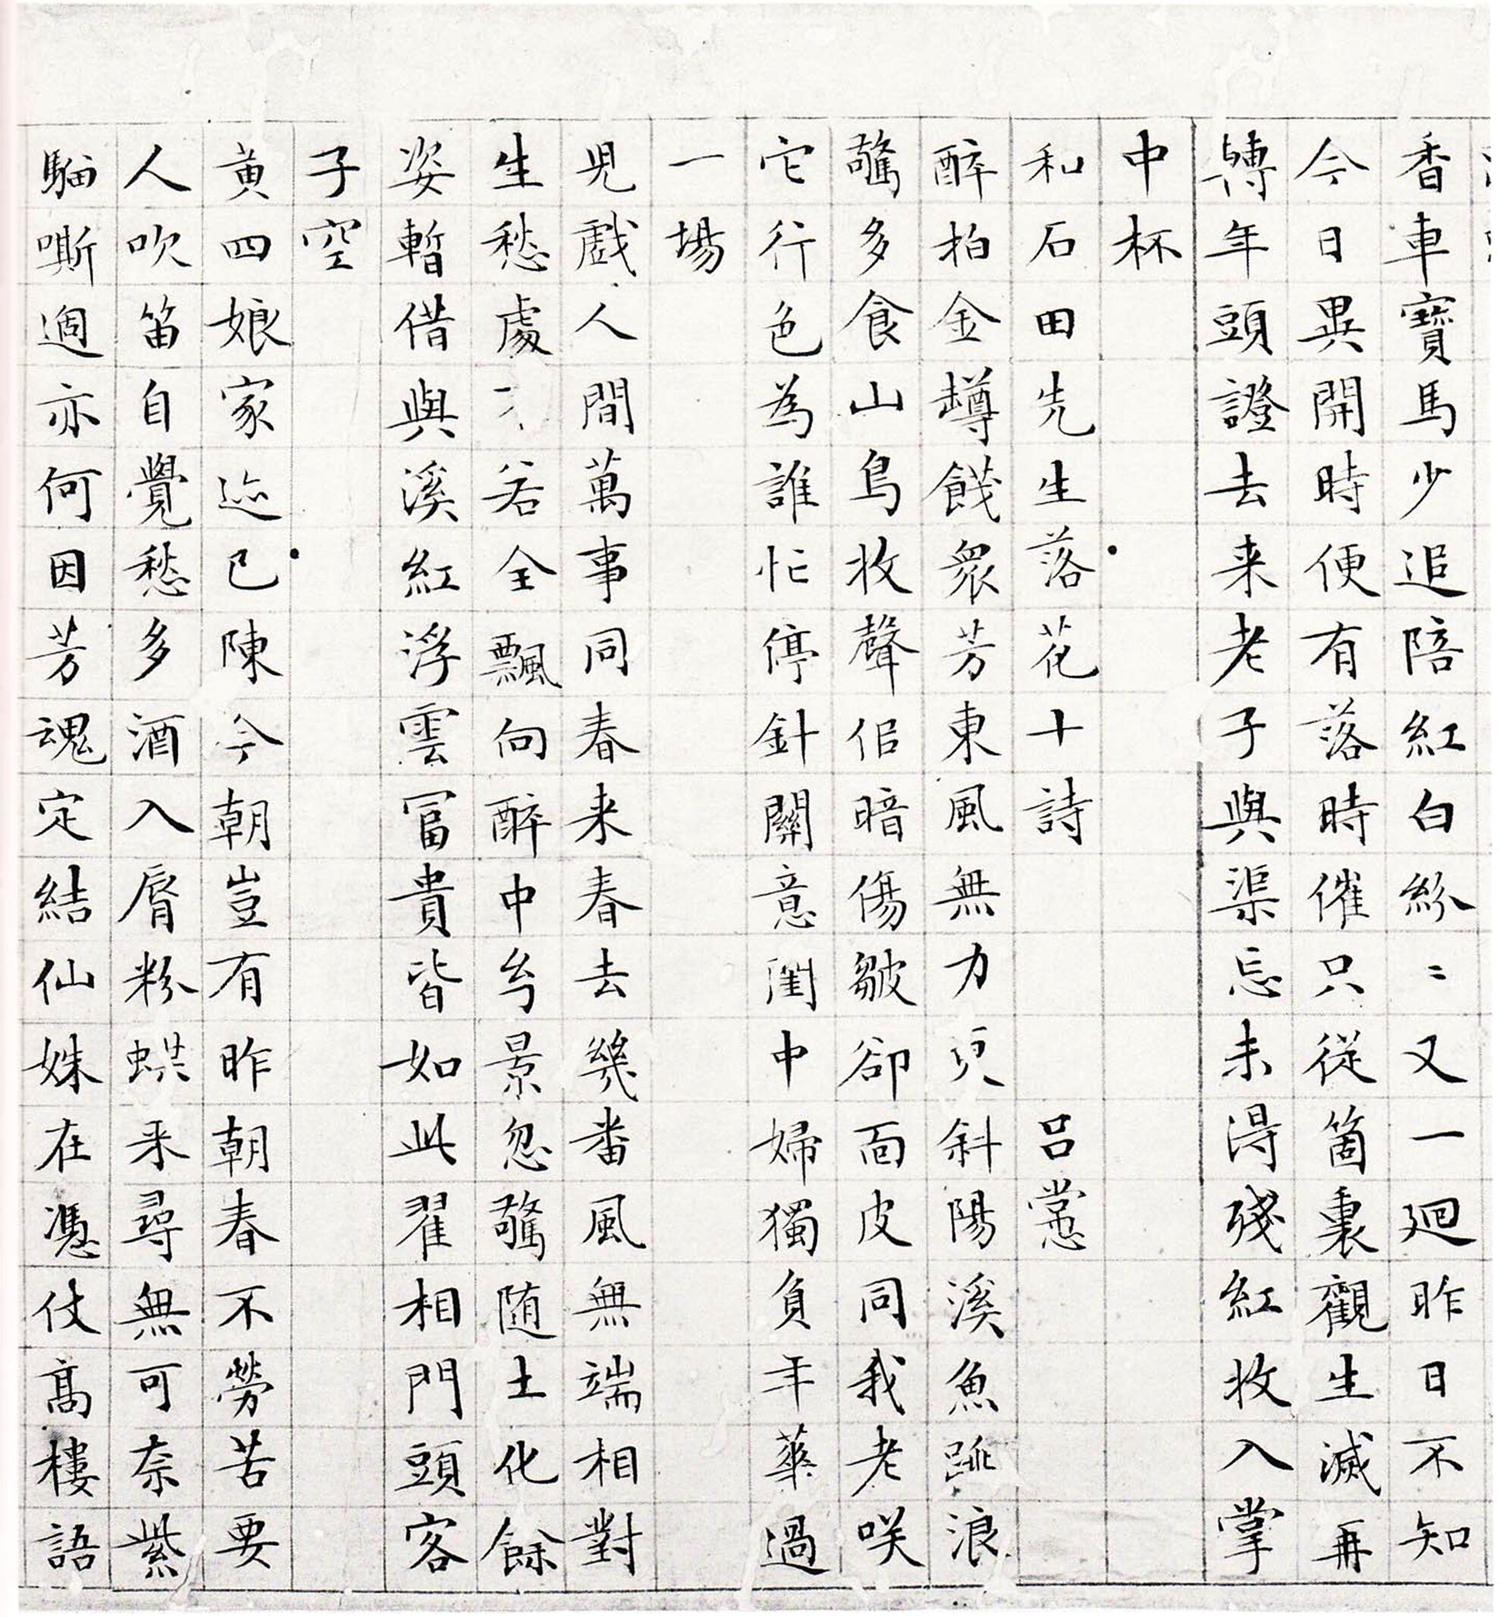 香車寶馬少追陪紅白紛〻又一廻昨日不知
今日異開時便有落時催只從箇裏觀生滅再
轉年頭證去来老子與渠忘未得殘紅收入掌
中杯
和石田先生落花十詩 呂㦂
醉拍金樽餞衆芳東風無力更斜陽溪魚跳浪
驚多食山鳥收聲似暗傷皺卻面皮同我老咲
它行色為誰忙停針關意閨中婦獨負年華過
一場
児戲人間萬事同春来春去幾番風無端相對
生愁處 若全飄向醉中兮景忽驚随土化餘
姿暫借與溪紅浮雲冨貴皆如此翟相門頭客
子空
黄四娘家迹已陳今朝豈有昨朝春不勞苦要
人吹笛自覺愁多酒入脣粉蜨来尋無可奈紫
騮嘶過亦何因芳魂定結仙姝在憑仗高樓語